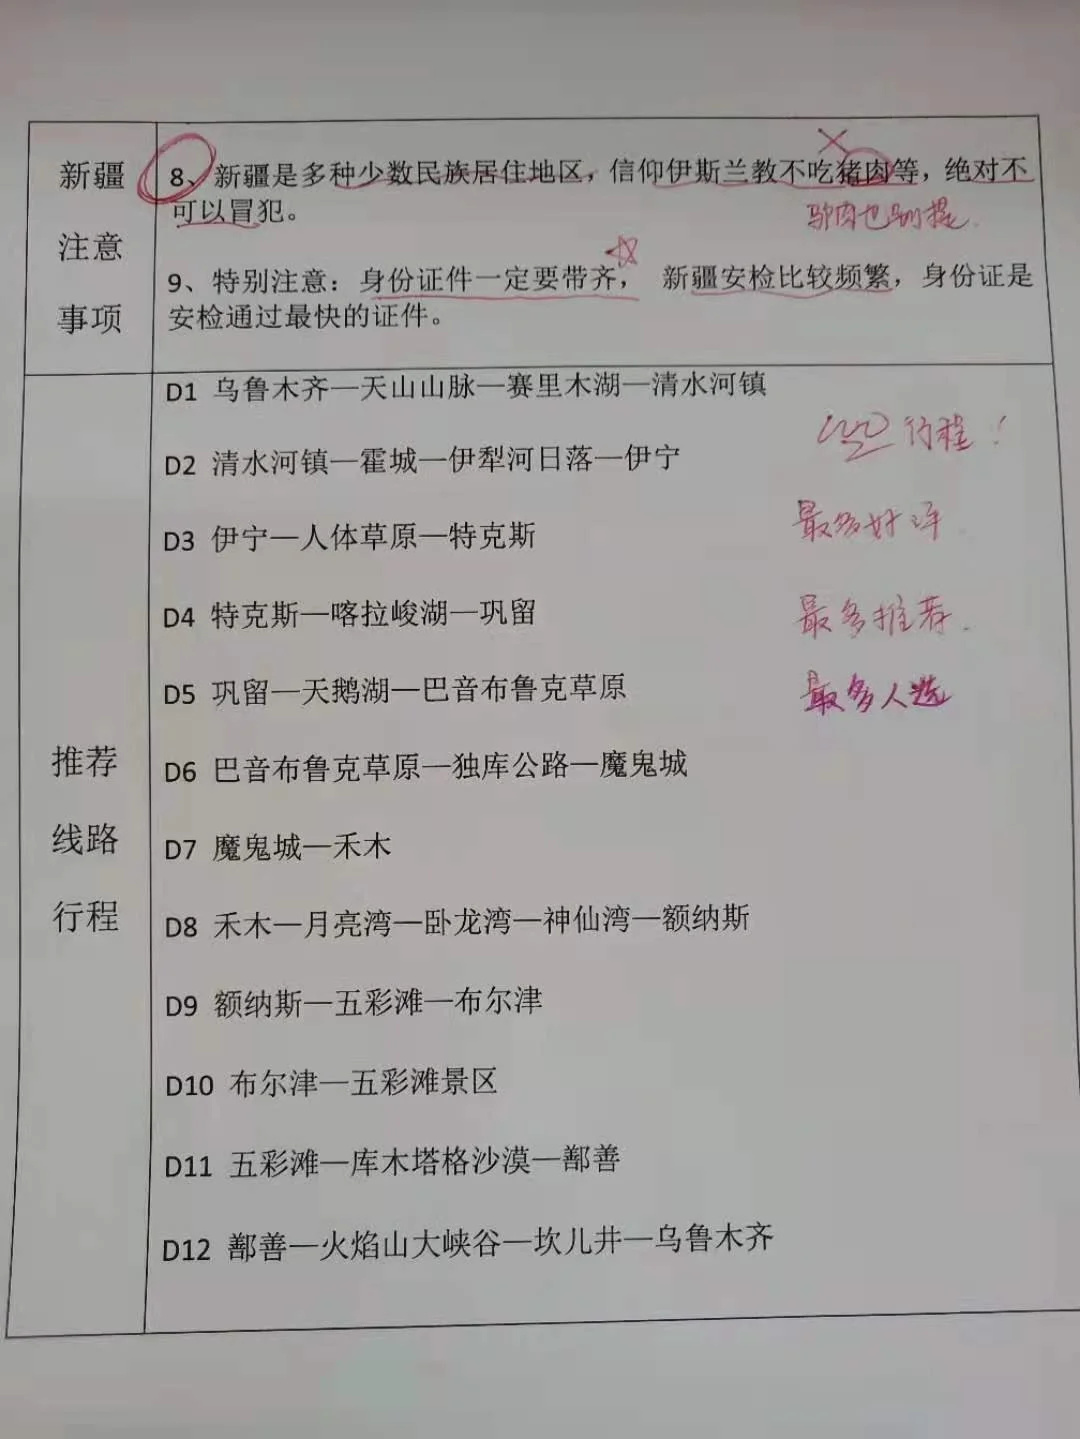 新疆
注意
事项
8、新疆是多种少数民族居住地区，信仰伊斯兰教不吃猪肉等，绝对不
可以冒犯。
驴肉也别提.
9、特别注意：身份证件一定要带齐，　新疆安检比较频繁，身份证是
安检通过最快的证件。
推荐
线路
行程
D1 乌鲁木齐—天山山脉—赛里木湖—清水河镇
行程！
D2 清水河镇—霍城—伊犁河日落—伊宁
D3 伊宁—人体草原—特克斯
最多好评
D4 特克斯—喀拉峻湖—巩留
最多推荐.
D5 巩留—天鹅湖—巴音布鲁克草原
最多人选
D6 巴音布鲁克草原—独库公路—魔鬼城
D7 魔鬼城—禾木
D8 禾木—月亮湾—卧龙湾—神仙湾—额纳斯
D9 额纳斯—五彩滩—布尔津
D10 布尔津—五彩滩景区
D11 五彩滩—库木塔格沙漠—鄯善
D12 鄯善—火焰山大峡谷—坎儿井—乌鲁木齐